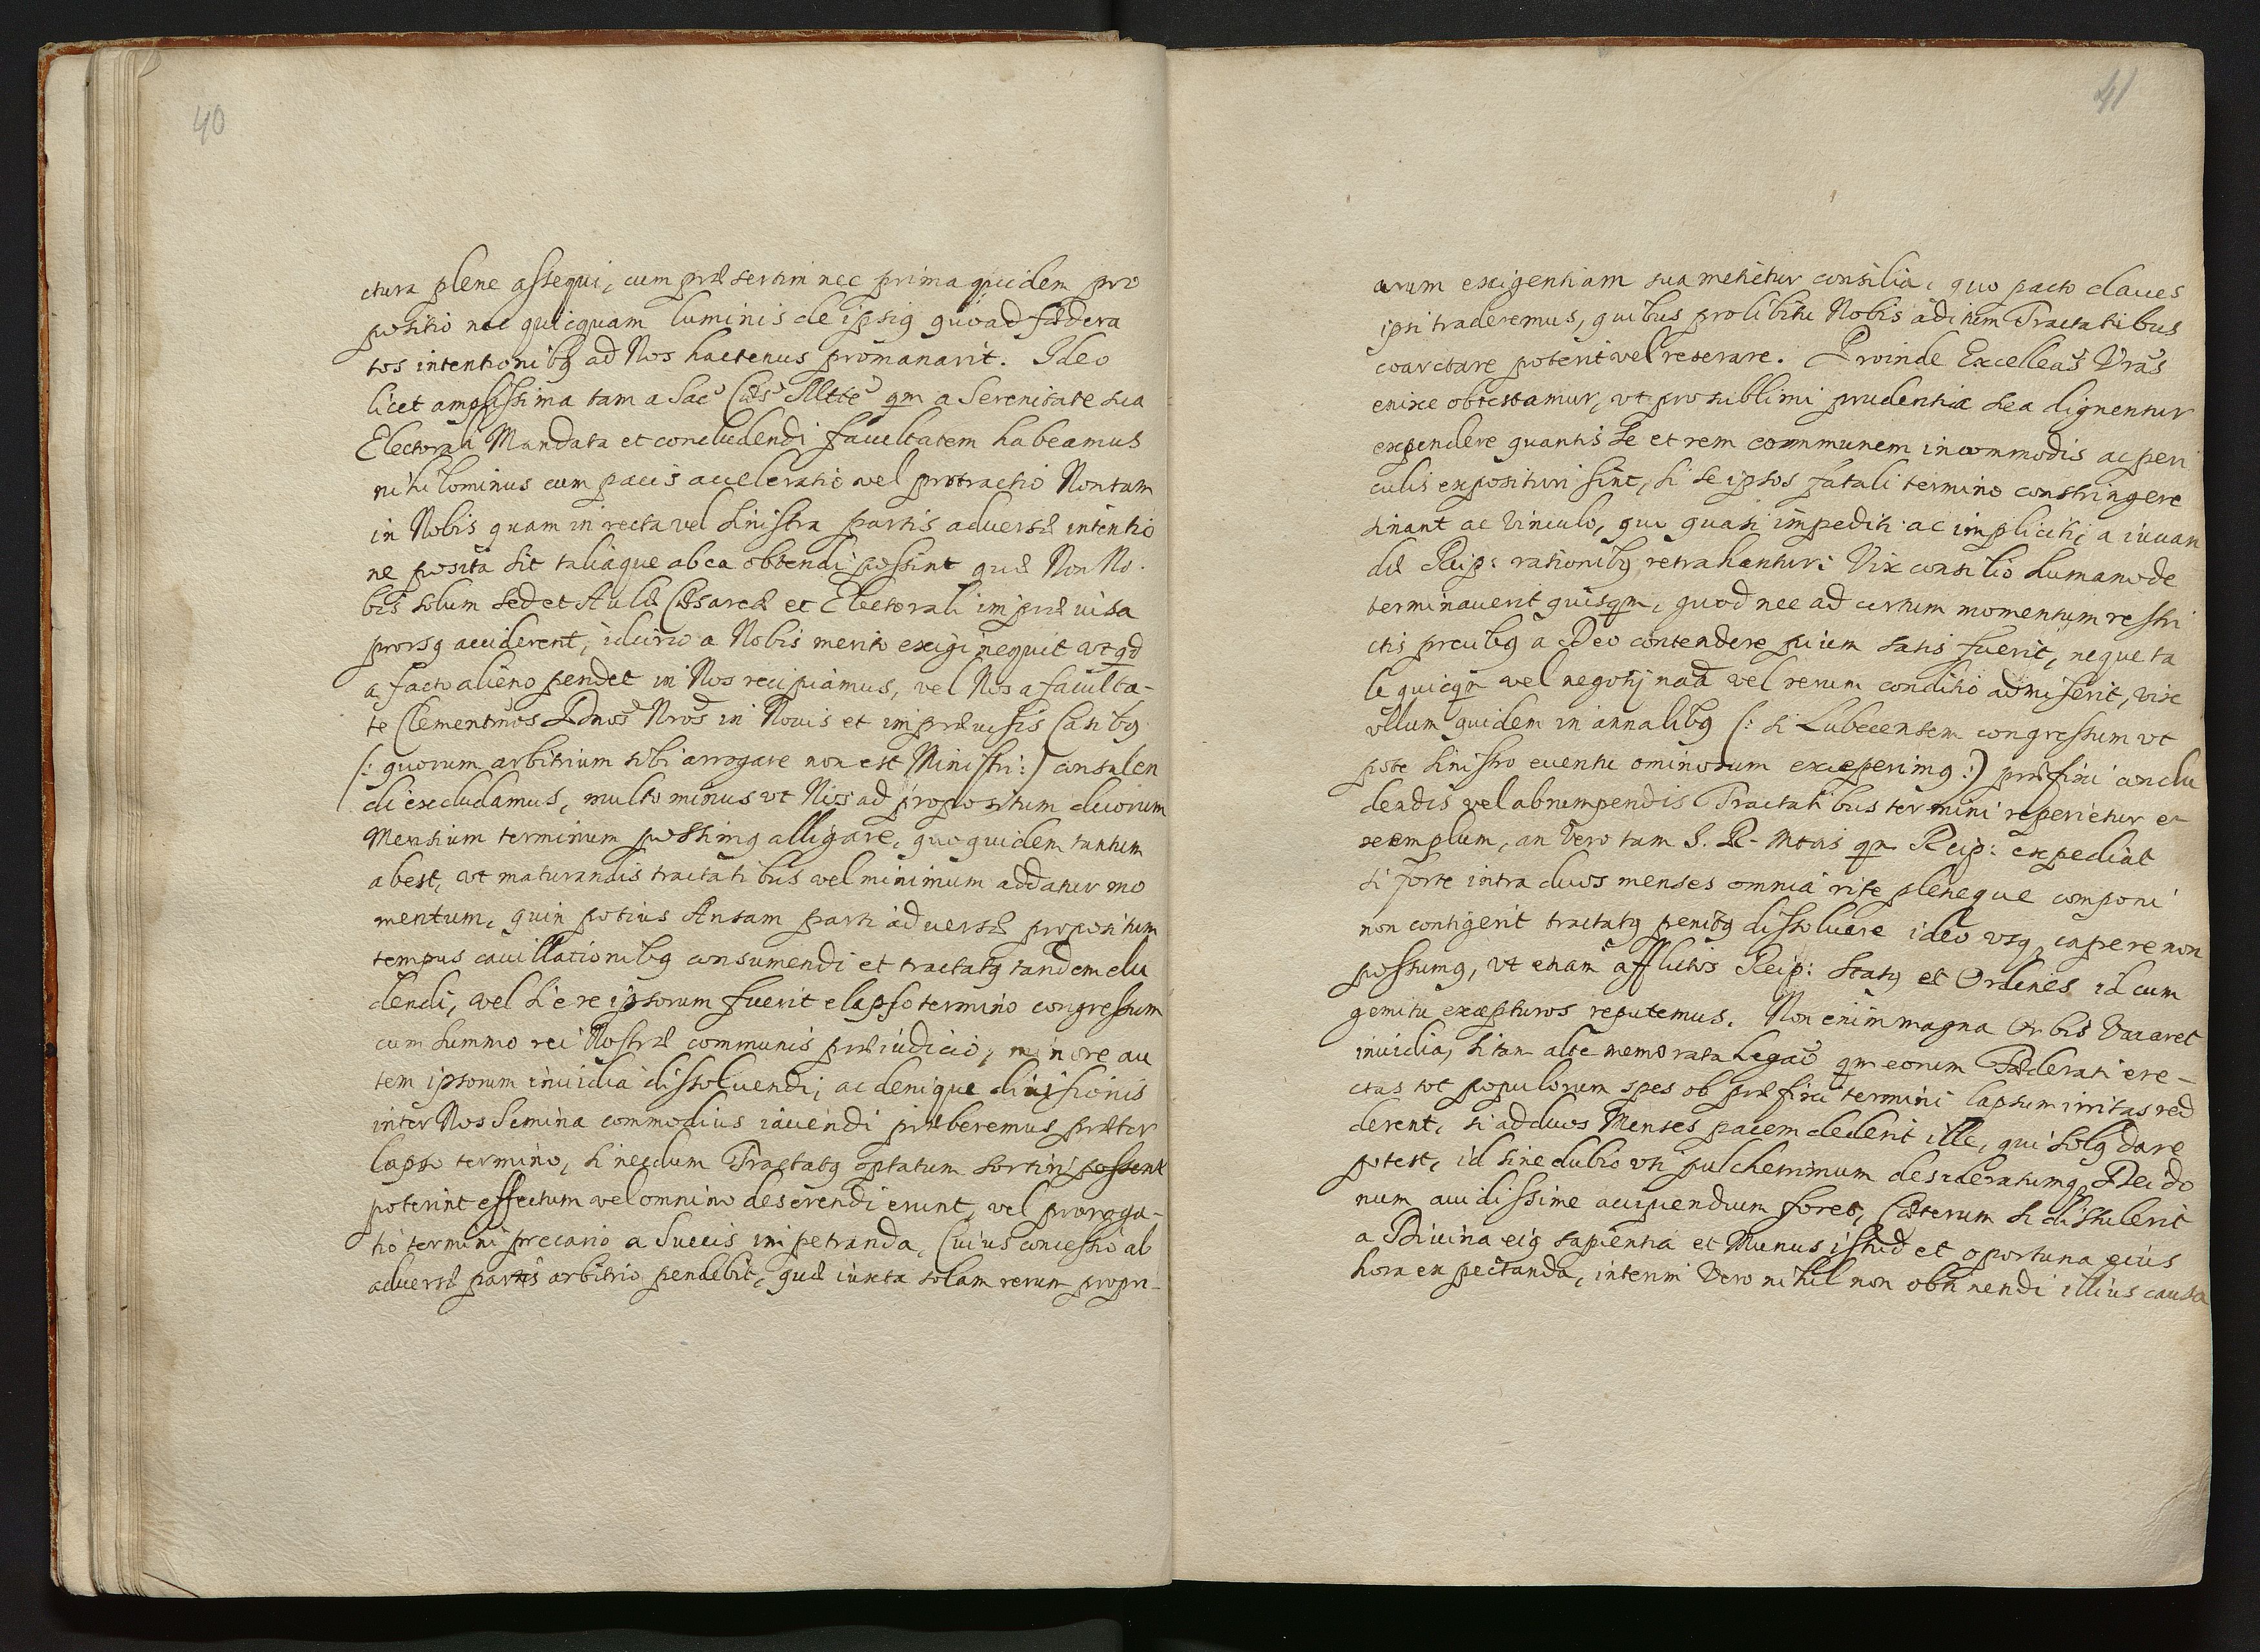 40
ctura plene assequi, cum præsertim nec prima quidem pro
positio nec quicquam luminis de ipsis quoad fædera
tos intentionibꝗ ad Nos hactenus promanarit. Ideo
licet amplissima tam a Sac Cæs Mtte qm a Serenitate sua
Electorali Mandata et concludendi facultatem habeamus
nihilominus cum pacis acceleratio vel protractio Non tam
in Nobis quam in recta vel sinistra partis adversæ intentio
ne posita sit taliaque ab ea obtendi possint quæ Non No
bis solum sed et Aulæ Cæsareæ et Electorali impræuisa
prorsꝗ acciderent, idcirco a Nobis merito exigi nequit vt qd
a facto alieno pendet in Nos recipiamus, vel Nos a faculta-
te Clementmos Dnos Nros in Nouis et impræuisis Casibꝗ
(: quorum arbitrium sibi arrogare non est Ministri :) consulen
di excludamus, multo minus vt Nos ad propositum duorum
Mensium terminum possimꝗ alligare, quo quidem tantum
abest, vt maturandis tractatibus vel minimum addatur mo
mentum, quin potius Ansam parti adversæ propositum
tempus cauillationibꝗ consumendi et tractatꝗ tandem elu
dendi, vel si e re ipsorum fuerit elapso termino congressum
cum summo rei Nostræ communis præiudicio, minore au
tem ipsorum inuidia dissoluendi; ac denique diuisionis
inter Nos Semina commodius iaciendi præberemus præter
lapso termino, si necdum Tractatꝗ optatum sortiri possent
poterint effectum vel omnino deserendi erunt, vel proroga-
tio termini precario a Suecis impetranda, Cuius concessio ab
adversæ partis arbitrio pendebit, quæ iuxta solam rerum propri-
41
arum exigentiam sua metietur consilia, quo pacto claues
ipsi traderemus, quibus pro libitu Nobis aditum Tractatibus
coarctare poterit vel reserare. Proinde Excelleas Vras
enixe obtestamur, vt pro sublimi prudentia sea dignentur
expendere quantis se et rem communem incommodis ac peri
culis exposituri sint, si se ipsos fatali termino constringere
sinant ac vinculo, quo quasi impediti ac impliciti, a iuuan
dæ Reip: rationibꝗ retrahantur: Vix consilio humano de
terminauerit quisqm, quod nec ad certum momentum restri
ctis precibꝗ a Deo contendere pium satis fuerit, neque ta
le quicqm vel negotij naa vel rerum conditio admiserit, vix
vllum quidem in annalibꝗ (: si Lubecensem congressum vt
pote sinistro euentu ominosum exceperimꝗ :) præfixi conclu
dendis vel abrumpendis Tractatibus termini reperietur ex
exemplum, an vero tam S. R. Mtis qm Reip: expediat
si forte intra duos menses omnia rite pleneque componi
non contigerit tractatꝗ penitꝗ dissoluere ideo vsꝗ capere non
possumꝗ, vt etiam afflictos Reip: Statꝗ et Ordines id cum
gemitu excepturos reputemus. Non enim magna Orbis Vacaret
inuidia, si tam alte memorata Legao qm eorum Fæderati ere-
ctas tot populorum spes ob præfixi termini lapsum irritas red
derent, si ad duos Menses pacem dederit ille, qui solꝗ dare
potest, id sine dubio vti pulcherrimum desideratumꝗ Dei do
num auidissime accipiendum foret, Cæterum si distulerit
a Diuina eiꝗ sapientia et Munus istud et oportuna eius
hora expectanda, interim vero nihil non obtinendi illius causa